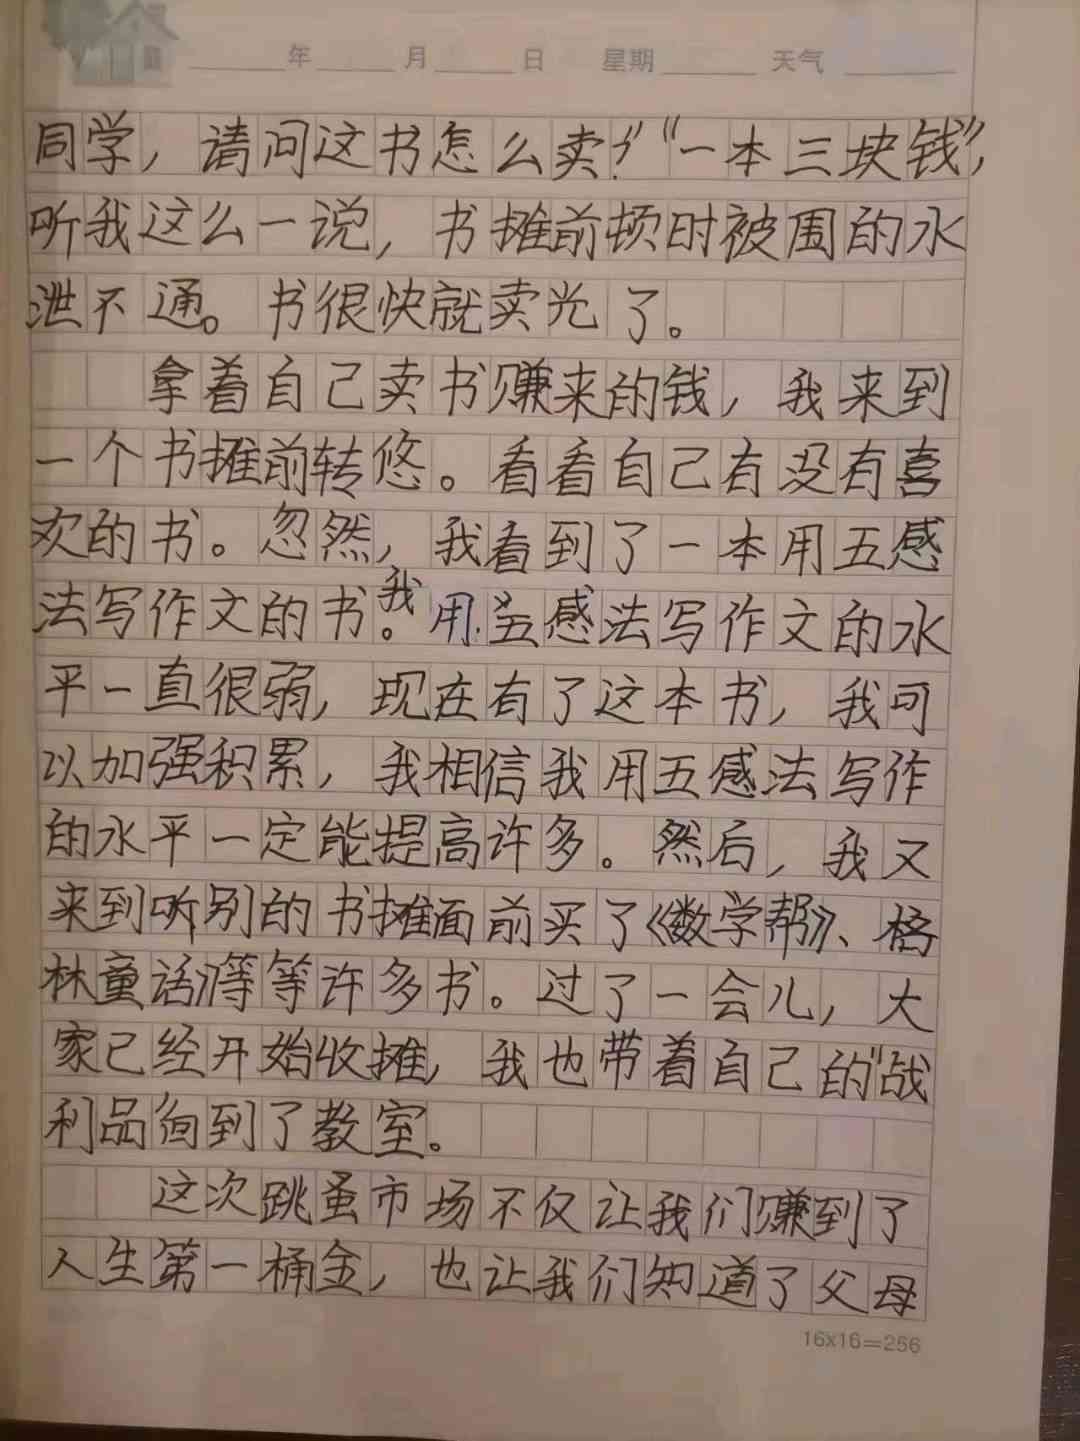 年 月 日 星期 天气
同学，请问这书怎么卖？”“一本三块钱”，
听我这么一说，书摊前顿时被围的水
泄不通。书很快就卖光了。
拿着自己卖书赚来的钱，我来到
一个书摊前转悠。看看自己有没有喜
欢的书。忽然，我看到了一本用五感
法写作文的书。我用五感法写作文的水
平一直很弱，现在有了这本书，我可
以加强积累，我相信我用五感法写作
的水平一定能提高许多。然后，我又
来到听别的书摊面前买了《数学帮》、格
林童话》等等许多书。过了一会儿，大
家已经开始收摊，我也带着自己的“战
利品”回到了教室。
这次跳蚤市场不仅让我们赚到了
人生第一桶金，也让我们知道了父母
16×16=256